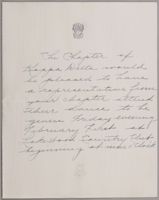 The Chapter of
Kappa Delta would
be pleased to have
a representative from
your chapter attend
their dance to be
given Friday evening
February first at
Lakewood Country Club
beginning at nine o'clock